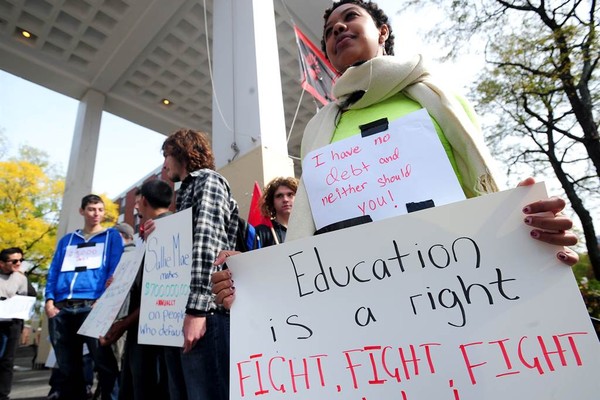 I have no
debt and
neither should
you!
Sallie Mae
makes
ANNUALLY
on people
who default
Education
is a right
FIGHT, FIGHT, FIGHT